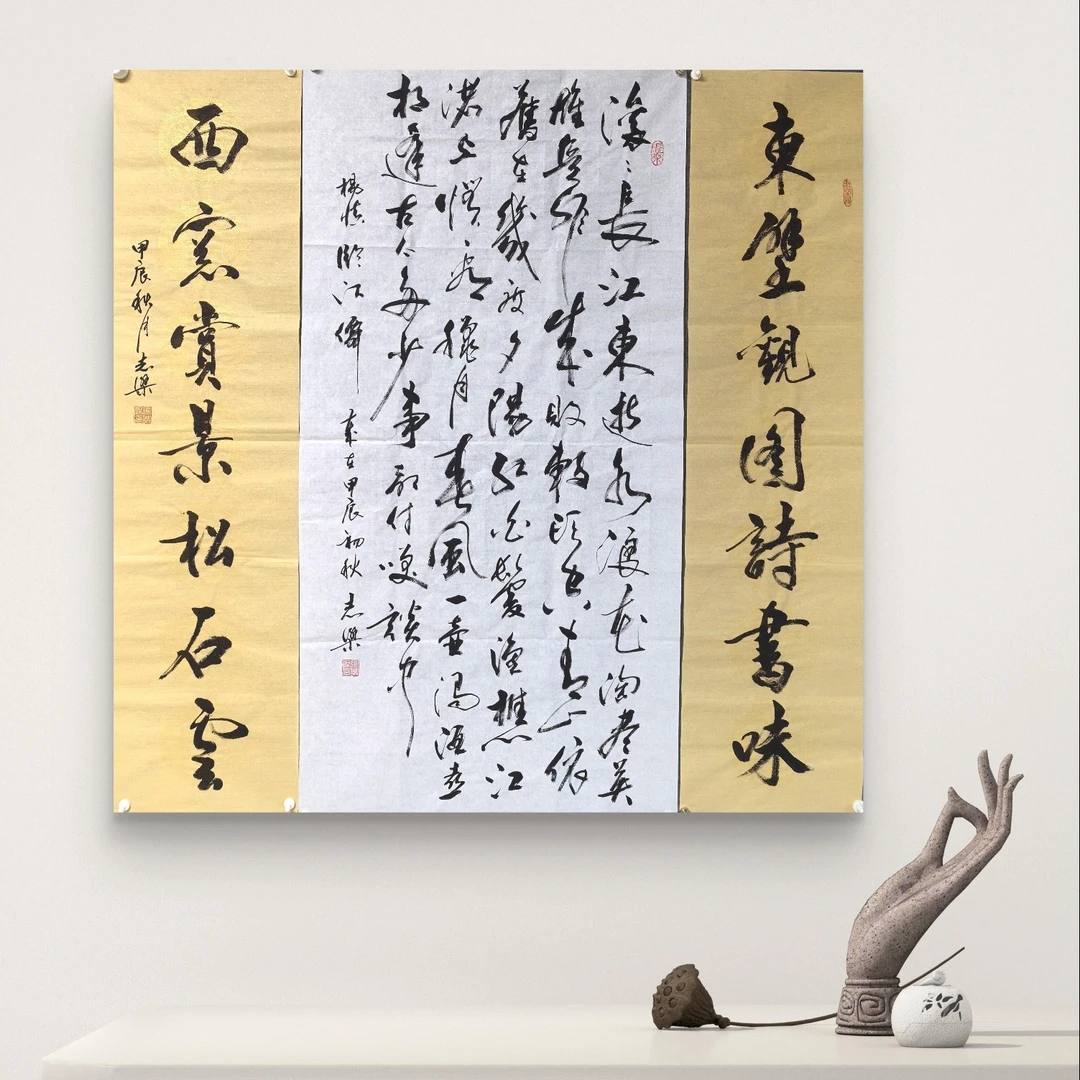 東壁觀图詩書味
滚滚長江東逝水浪花淘尽英
雄是非成敗轉頭空青山依
舊在幾度夕陽红白髮漁樵江
渚上慣看秋月春風一壺濁酒喜
相逢古今多少事都付笑談中
楊慎臨江僊 歲在甲辰初秋 志樂
西窓賞景松石雲
甲辰秋月志樂